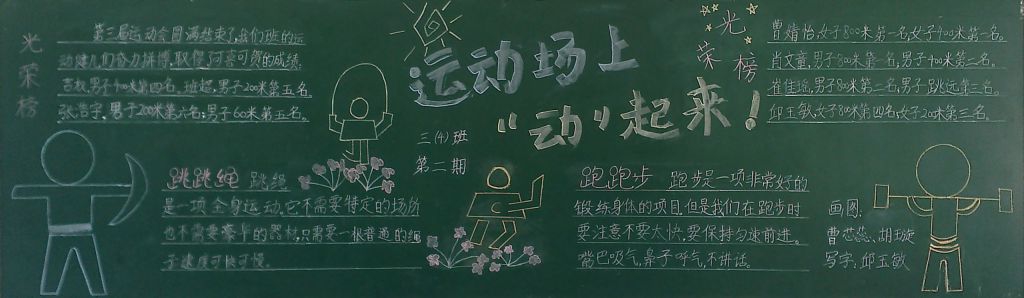 光荣榜
第三届运动会圆满结束了,我们班的运
动健儿们奋力拼搏,取得了可喜可贺的成绩。
男子400米第四名,班超,男子200米第五名。
张浩宇,男子200米第六名,男子60米第五名。
运动场上
“动”起来!
三(4)班
第二期
光荣榜
曹婧怡,女子800米第一名,女子400米第一名。
肖文童,男子800米第一名,男子400米第二名。
崔佳瑶,男子80米第二名,男子跳远第三名。
邱玉敏,女子800米第四名,女子200米第三名。
跳跳绳 跳绳
是一项全身运动,它不需要特定的场所
也不需要豪华的器材,只需要一根普通的绳
子速度可快可慢。
跑跑步 跑步是一项非常好的
锻练身体的项目,但是我们在跑步时
要注意不要太快,要保持匀速前进。
嘴巴吸气,鼻子呼气,不讲话。
画图:
曹蕊蕊、胡璇
写字:邱玉敏